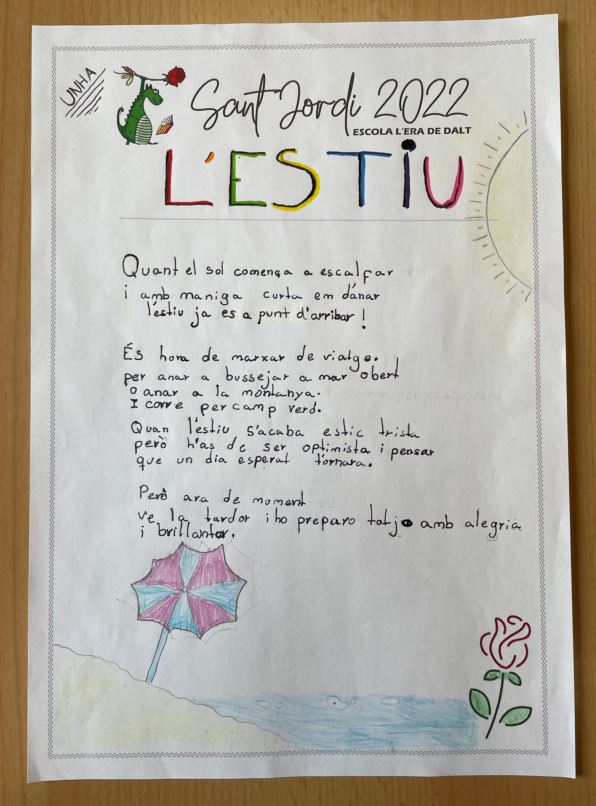 UNHA
Sant Jordi 2022
ESCOLA L'ERA DE DALT
L'ESTIU
Quant el sol comença a escalfar
i amb maniga curta em d'anar
l'estiu ja es a punt d'arribar!
És hora de marxar de viatge.
per anar a bussejar a mar obert
o anar a la montanya.
I corre per camp verd.
Quan l'estiu s'acaba estic trista
però h'as de ser optimista i pensar
que un dia esperat tornara.
Però ara de moment
ve la tardor i ho preparo tot jo amb alegria
i brillantor.